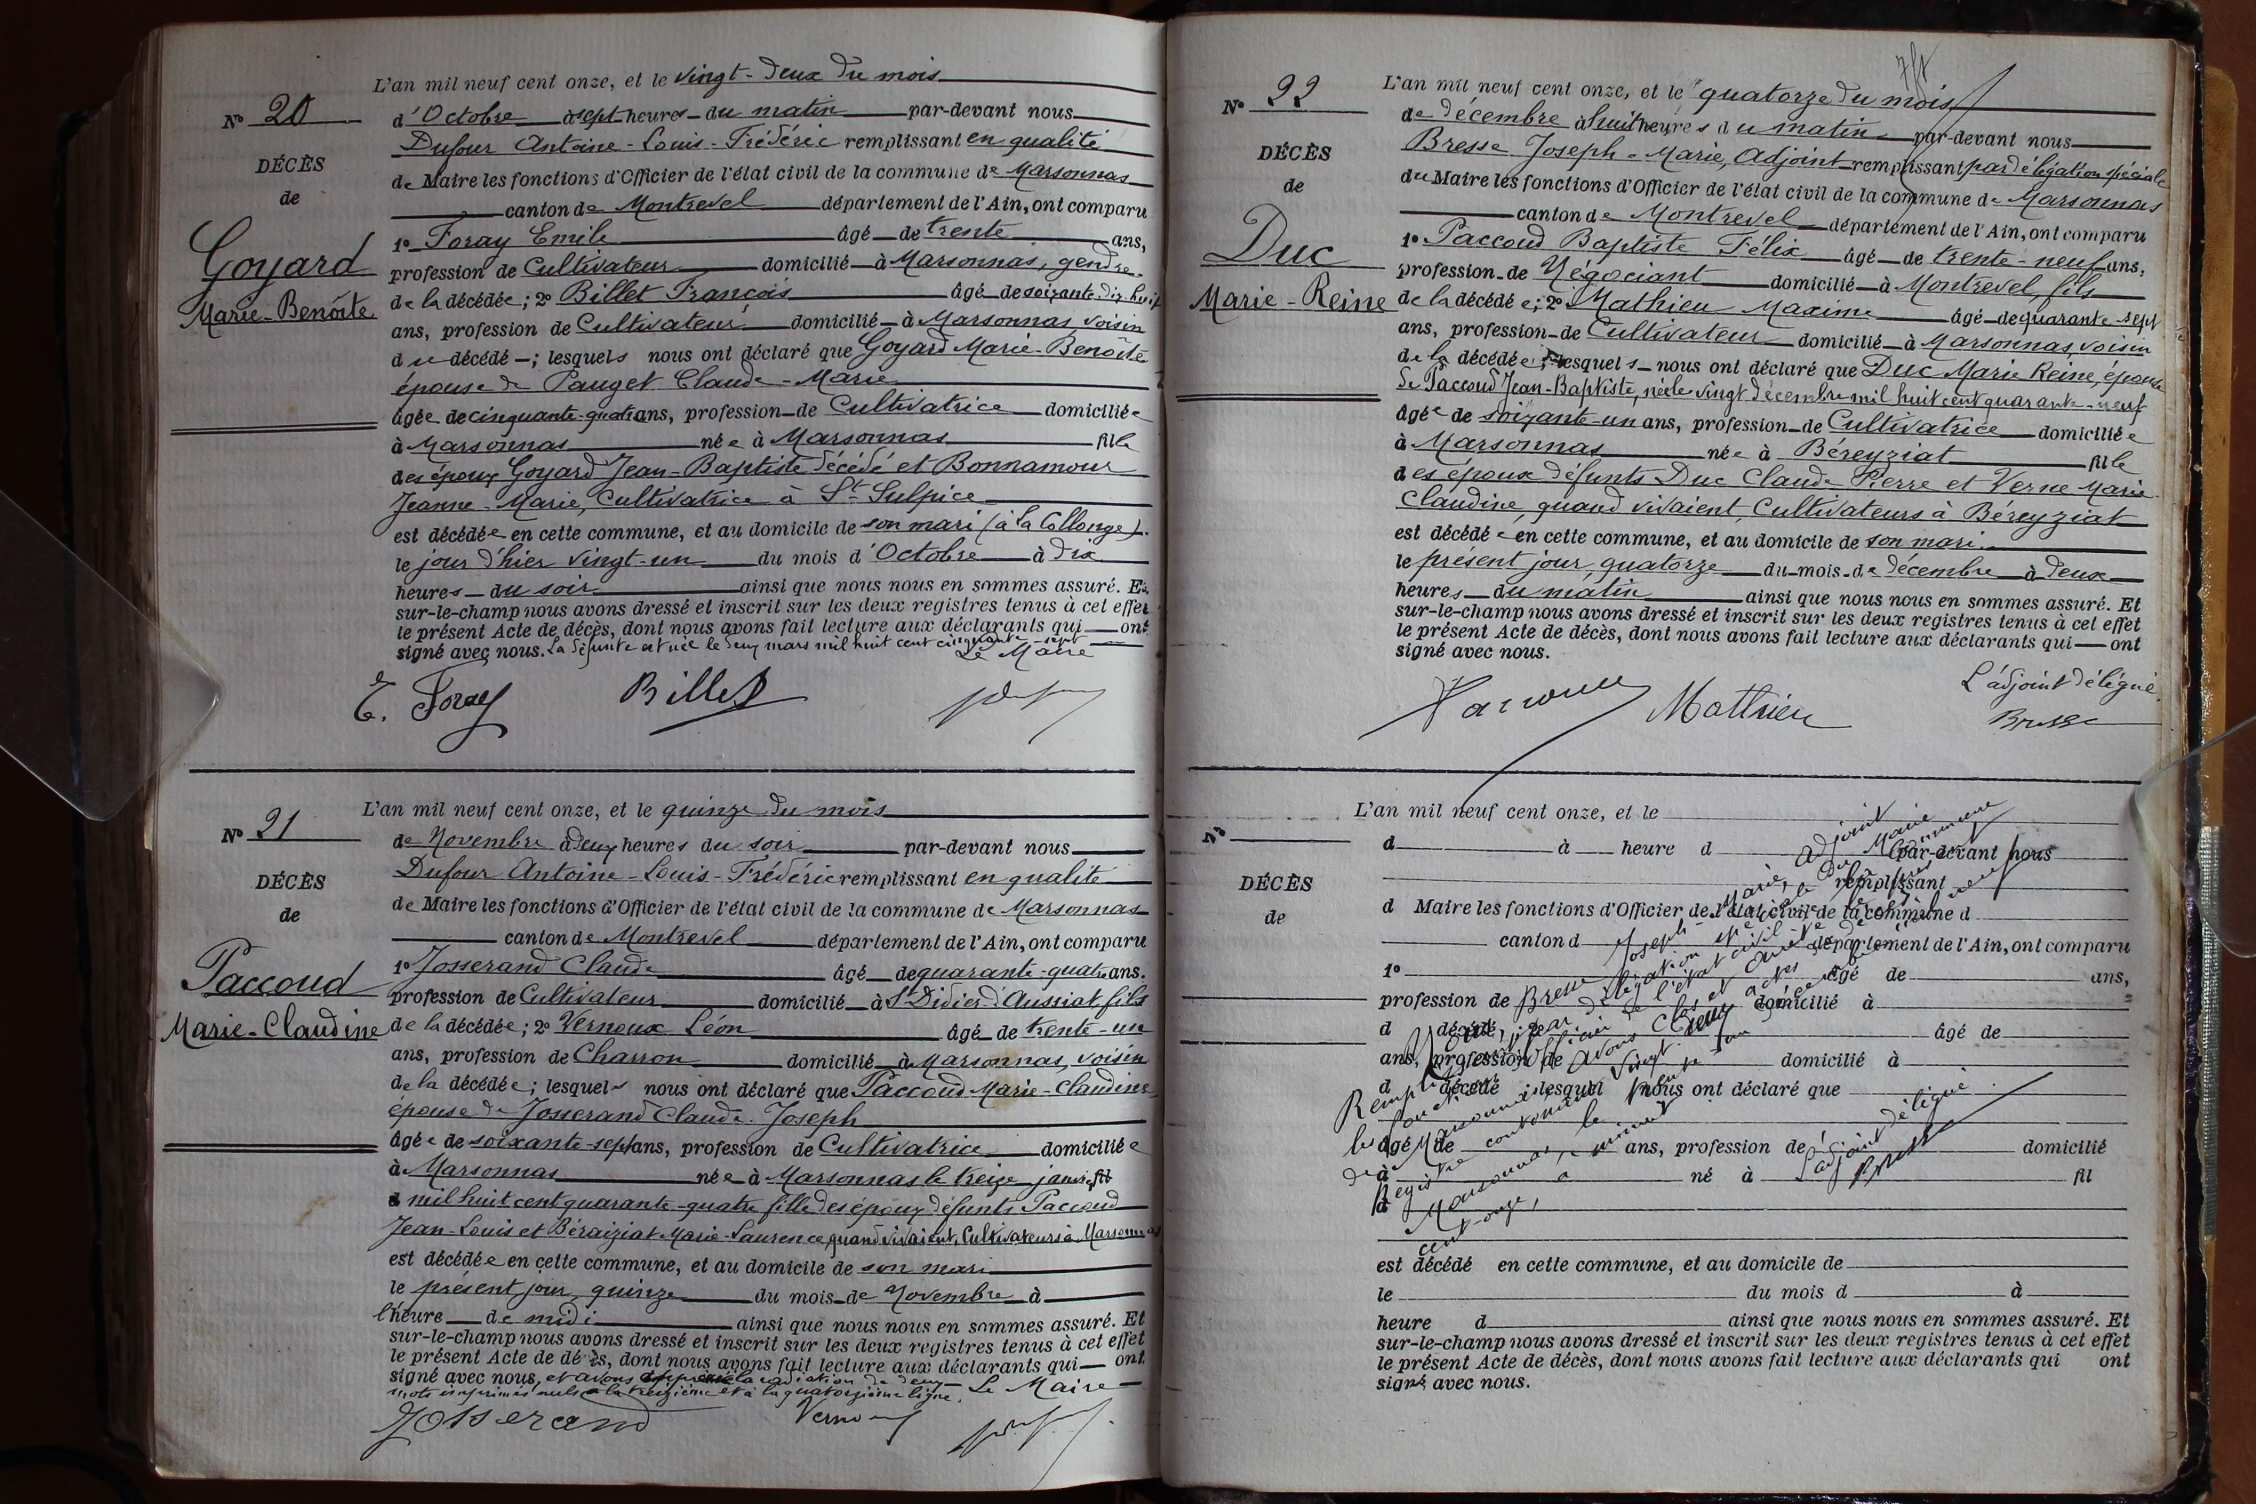 L'an mil neuf cent onze, et le vingt-deux du mois
N° 20
d'Octobre à sept heures du matin par-devant nous
Dufour Antoine-Louis-Frédéric remplissant en qualité
DÉCÈS
de Maire les fonctions d'Officier de l'état civil de la commune de Marsonnas
de
canton de Montrevel département de l'Ain, ont comparu
Goyard
1° Foray Emile âgé de trente ans,
profession de Cultivateur domicilié à Marsonnas, gendre
Marie-Benoîte
de la décédée; 2° Billet François âgé de soixante dix huit
ans, profession de Cultivateur domicilié à Marsonnas, voisin
du décédé; lesquels nous ont déclaré que Goyard Marie-Benoîte
épouse de Pauget Claude-Marie
âgée de cinquante-quatre ans, profession de Cultivatrice domiciliée
à Marsonnas née à Marsonnas fille
des époux Goyard Jean-Baptiste décédé et Bonnamour
Jeanne-Marie, Cultivatrice à St Sulpice
est décédée en cette commune, et au domicile de son mari (à la Collonge)
le jour d'hier vingt-un du mois d'Octobre à dix
heures du soir ainsi que nous nous en sommes assuré. Et
sur-le-champ nous avons dressé et inscrit sur les deux registres tenus à cet effet
le présent Acte de décès, dont nous avons fait lecture aux déclarants qui ont
signé avec nous. La défunte est née le deux mars mil huit cent cinquante-sept
Le Maire
E. Foray Billet
L'an mil neuf cent onze, et le quinze du mois
N° 21
de Novembre à deux heures du soir par-devant nous
Dufour Antoine-Louis-Frédéric remplissant en qualité
DÉCÈS
de Maire les fonctions d'Officier de l'état civil de la commune de Marsonnas
de
canton de Montrevel département de l'Ain, ont comparu
Paccoud
1° Josserand Claude âgé de quarante-quatre ans.
profession de Cultivateur domicilié à St Didier d'Aussiat, fils
Marie-Claudine
de la décédée; 2° Vernoux Léon âgé de trente-un
ans, profession de Charron domicilié à Marsonnas, voisin
de la décédée; lesquels nous ont déclaré que Paccoud Marie-Claudine
épouse de Josserand Claude-Joseph
âgée de soixante-sept ans, profession de Cultivatrice domiciliée
à Marsonnas née à Marsonnas le treize janvier fil
d mil huit cent quarante-quatre fille des époux défunts Paccoud
Jean-Louis et Béraiziat Marie-Laurence, quand vivaient, Cultivateurs à Marsonnas
est décédée en cette commune, et au domicile de son mari
le présent jour, quinze du mois de Novembre à
l'heure de midi ainsi que nous nous en sommes assuré. Et
sur-le-champ nous avons dressé et inscrit sur les deux registres tenus à cet effet
le présent Acte de décès, dont nous avons fait lecture aux déclarants qui ont
signé avec nous, et avons la radiation de deux
mots imprimés nuls à la treizième et à la quatorzième ligne. Le Maire
Josserand Vernoux
L'an mil neuf cent onze, et le quatorze du mois
N° 22
de décembre à huit heures du matin par-devant nous
Bresse Joseph-Marie, Adjoint remplissant par délégation spéciale
DÉCÈS
du Maire les fonctions d'Officier de l'état civil de la commune de Marsonnas
de
canton de Montrevel département de l'Ain, ont comparu
Duc
1° Paccoud Baptiste Félix âgé de trente-neuf ans,
profession de Négociant domicilié à Montrevel, fils
Marie-Reine
de la décédée; 2° Mathieu Maxime âgé de quarante-sept
ans, profession de Cultivateur domicilié à Marsonnas, voisin
de la décédée; lesquels nous ont déclaré que Duc Marie Reine, épouse
de Paccoud Jean-Baptiste, née le vingt décembre mil huit cent quarante-neuf
âgée de soixante-un ans, profession de Cultivatrice domiciliée
à Marsonnas née à Béreyziat fille
des époux défunts Duc Claude Pierre et Verne Marie
Claudine, quand vivaient, Cultivateurs à Béreyziat
est décédée en cette commune, et au domicile de son mari
le présent jour, quatorze du mois de décembre à deux
heures du matin ainsi que nous nous en sommes assuré. Et
sur-le-champ nous avons dressé et inscrit sur les deux registres tenus à cet effet
le présent Acte de décès, dont nous avons fait lecture aux déclarants qui ont
signé avec nous.
L'adjoint délégué
Paccoud Mathieu Bresse
L'an mil neuf cent onze, et le
N°
d à heure d par-devant nous
remplissant
DÉCÈS
d Maire les fonctions d'Officier de l'état civil de la commune d
de
canton d département de l'Ain, ont comparu
1° âgé de ans,
profession de domicilié à
d décédé; 2° âgé de
ans, profession de domicilié à
d décédé; lesquel nous ont déclaré que
âgé de ans, profession de domicilié
à né à fil
d
est décédé en cette commune, et au domicile de
le du mois d à
heure d ainsi que nous nous en sommes assuré. Et
sur-le-champ nous avons dressé et inscrit sur les deux registres tenus à cet effet
le présent Acte de décès, dont nous avons fait lecture aux déclarants qui ont
signé avec nous.
Nous, Bresse Joseph-Marie, adjoint
L'adjoint délégué
Bresse